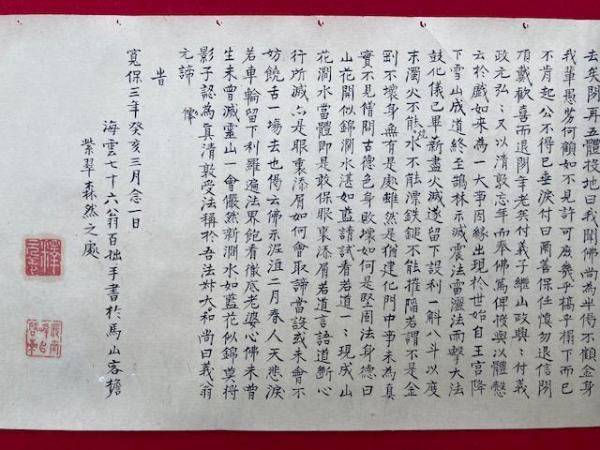 去矣閉再五體投地曰我聞佛尚為半偈不顧金身
我輩愚劣何顧如不見許可庶幾乎稿乎榻下而已
不肯起公不得已垂淚付曰爾善保任慎勿退信閉
頂戴歡喜而退閉宇老矣付義子繼山政與:付義
政元弘:又以清敦忘年而奉佛篤俾授與以體慇
云於戲如來為一大事因緣出現於世始自王宮降
下雪山成道終至鵠林示滅震法雷灑法雨擊大法
鼓化儀已畢薪盡火滅遂留下設利一斛八斗以度
末濁火不能水不能漂鉄鎚不能摧隔若謂不是金
剛不壞身無有是處雖然是猶建化門中事未為真
實不見僧問古德色身敗壞如何是堅固法身德曰
山花開似錦澗水湛如藍請試看若道一:現成山
花澗水當體即是敢保眼裏添屑若道言語道斷心
行所滅亦是眼裏添屑如何會取諦當設或未會不
妨饒舌一場去也偈云佛示涅洹二月春人天悲淚
若車輪留下利羅遍法界飽看徹底老婆心佛未曾
生未曾滅靈山一會儼然新澗水如藍花似錦莫將
影子認為真清敦受法稱於吾法姪大和尚曰義翁
元諦
昔
寬保三年癸亥三月念一日
海雲七十六翁百拙手書於馬山客擔
紫翠森然之處